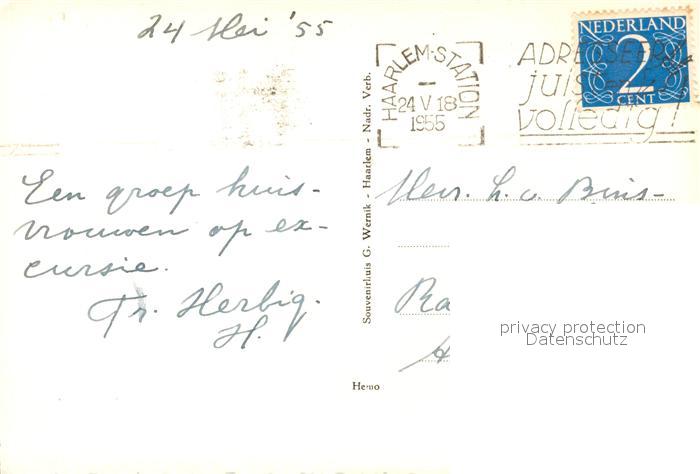 24 Mei '55
Een groep huis-
vrouwen op ex-
cursie.
Tr. Herbig.
H.
Souvenirhuis G. Wernik - Haarlem - Nadr. Verb.
Hemo
HAARLEM-STATION
24 V 18
1955
ADRESSEER
juist en
volledig!
NEDERLAND
2
CENT
Heer. L. v. Bins-
Ra
privacy protection
Datenschutz